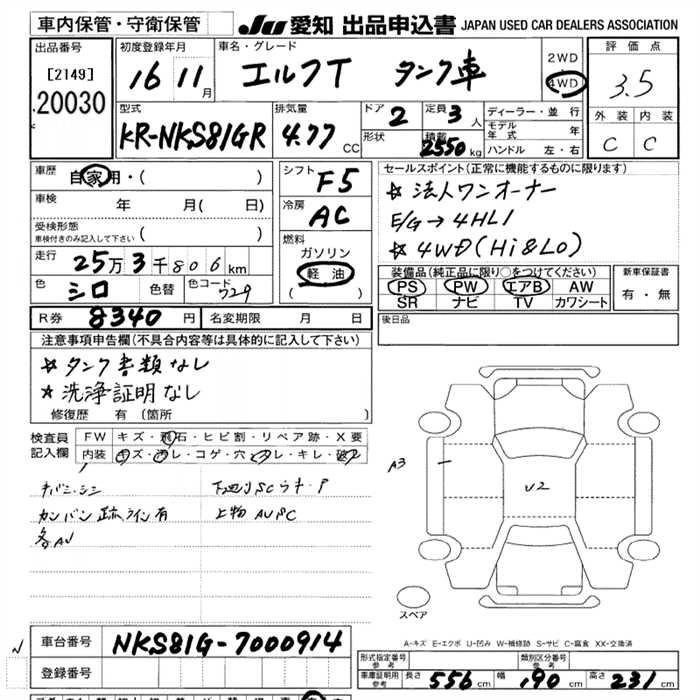 車内保管・守衛保管 JU 愛知 出品申込書 JAPAN USED CAR DEALERS ASSOCIATION
出品番号 [2149] 20030
初度登録年月 16 11月
車名・グレード エルフT タンク車
2WD 4WD
評価点 3.5
外装 C 内装 C
型式 KR-NKS81GR
排気量 4.77 CC
ドア 2 定員 3人
形状 積載 2550kg
ディーラー・並行
モデル年式 年
ハンドル 左・右
車歴 自家用・( )
シフト F5
セールスポイント(正常に機能するものに限ります)
☆ 法人ワンオーナー
E/G→4HL1
☆ 4WD(Hi&Lo)
車検 年 月(日)
冷房 AC
受検形態 車検付きのみ記入して下さい ( )
燃料 ガソリン 軽油 ( )
走行 25万3千806km
色 シロ 色替 色コード 729
装備品(純正品に限り○をつけてください) 新車保証書
PS PW エアB AW 有・無
SR ナビ TV カワシート
R券 8340円 名変期限 月 日
後日品
注意事項申告欄(不具合内容等は具体的に記入して下さい)
☆タンク書類なし
★洗浄証明なし
修復歴 有(箇所 )
検査員記入欄 FW キズ・飛石・ヒビ割・リペア跡・X要
内装 キズ・汚レ・コゲ・穴・スレ・キレ・破レ
カンバン跡、ライン有
A3
U2
スペア
A-キズ E-エクボ U-凹み W-補修跡 S-サビ C-腐食 XX-交換済
車台番号 NKS81G-7000914
登録番号
形式指定番号 参考 類別区分番号 参考
車庫証明用 参考 長さ 556cm 幅 190cm 高さ 231cm